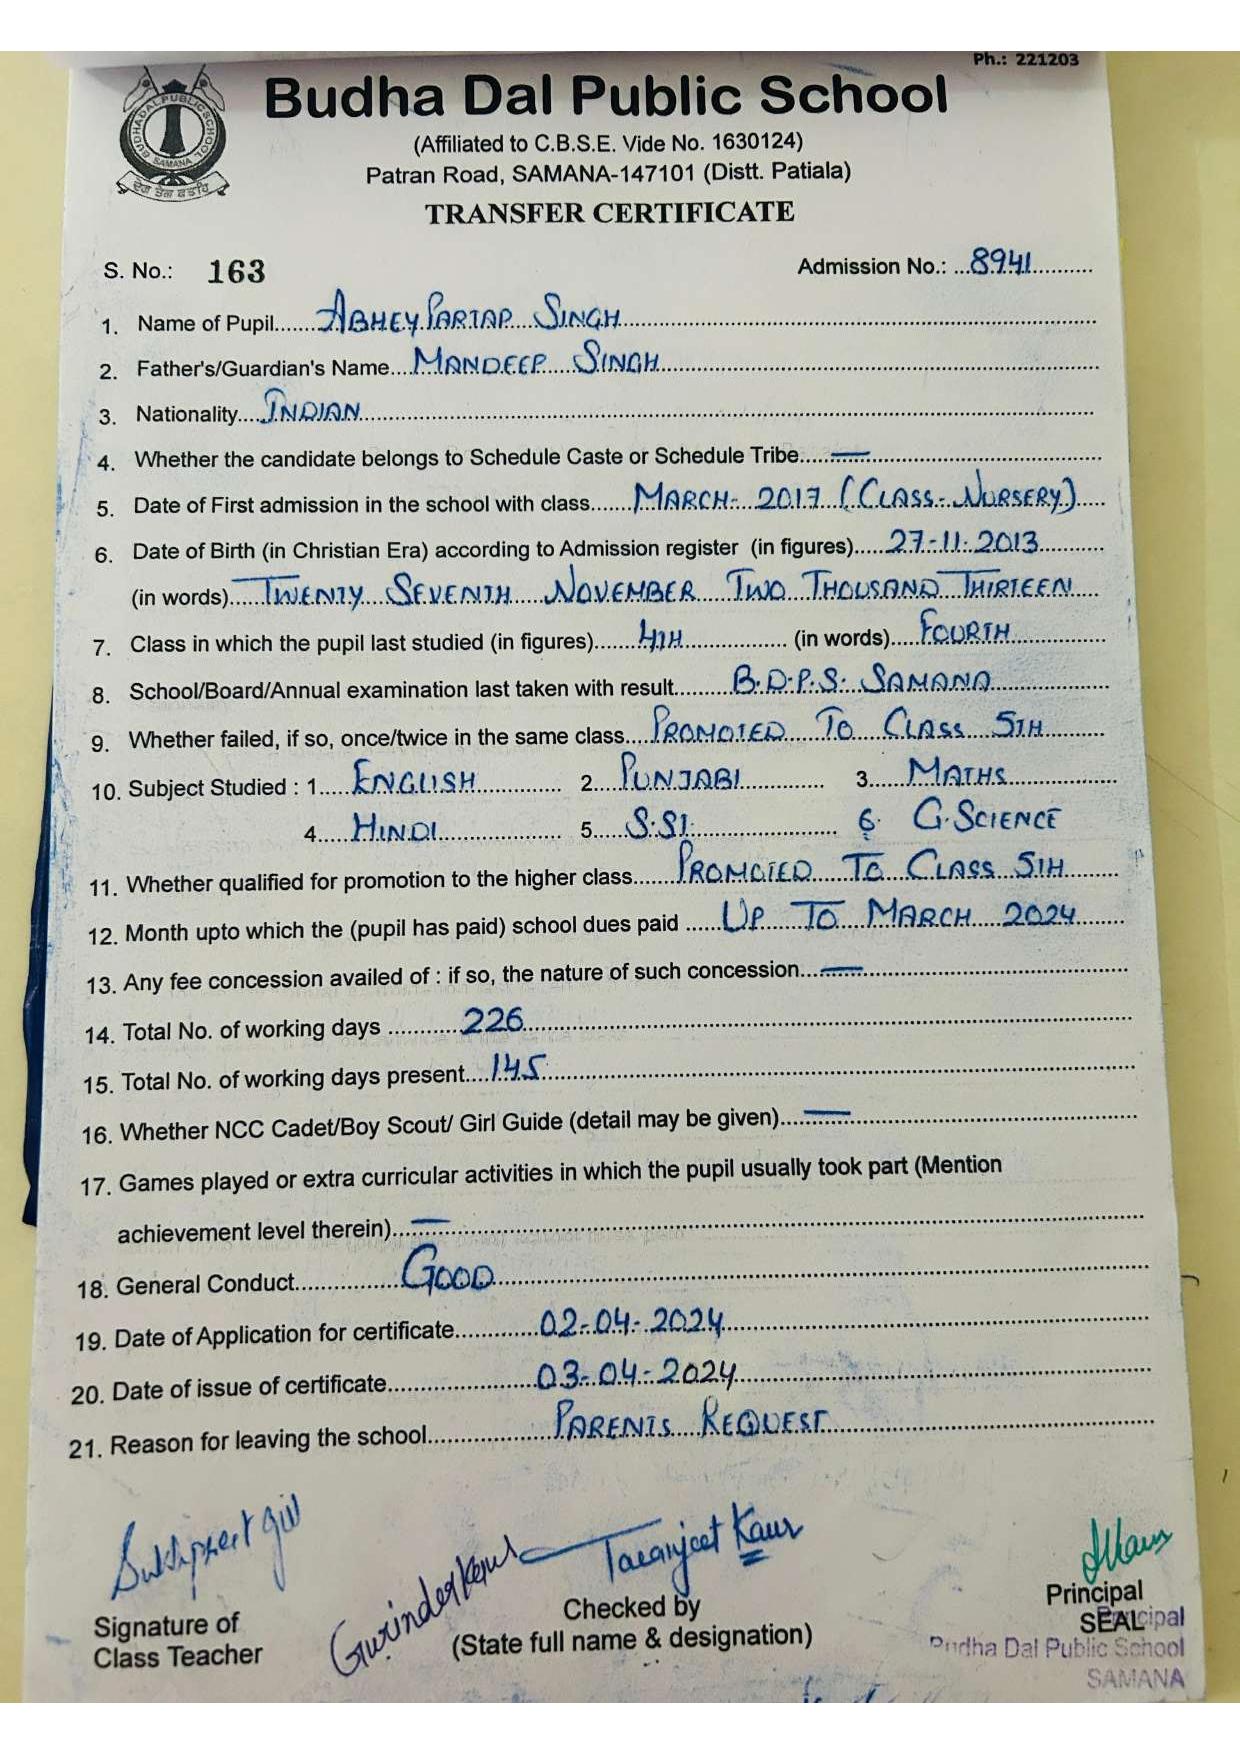 Ph.: 221203
BUDHA DAL PUBLIC SCHOOL
SAMANA
ਦੇਗ ਤੇਗ ਫਤਹਿ
Budha Dal Public School
(Affiliated to C.B.S.E. Vide No. 1630124)
Patran Road, SAMANA-147101 (Distt. Patiala)
TRANSFER CERTIFICATE
S. No.: 163 Admission No.: ...8941..........
1. Name of Pupil.......ABHEY PARTAP SINGH..........
2. Father's/Guardian's Name....MANDEEP SINGH..........
3. Nationality.....INDIAN..........
4. Whether the candidate belongs to Schedule Caste or Schedule Tribe.....—..........
5. Date of First admission in the school with class.......MARCH-2017 (CLASS-NURSERY).....
6. Date of Birth (in Christian Era) according to Admission register (in figures).....27-11-2013..........
(in words).....TWENTY SEVENTH NOVEMBER TWO THOUSAND THIRTEEN....
7. Class in which the pupil last studied (in figures).......4TH.......... (in words).....FOURTH..........
8. School/Board/Annual examination last taken with result.........B.D.P.S. SAMANA..........
9. Whether failed, if so, once/twice in the same class....PROMOTED TO CLASS 5TH..........
10. Subject Studied : 1.....ENGLISH.......... 2....PUNJABI.......... 3....MATHS..........
4.....HINDI.......... 5.....S.ST.......... 6. G.SCIENCE
11. Whether qualified for promotion to the higher class.......PROMOTED TO CLASS 5TH.........
12. Month upto which the (pupil has paid) school dues paid ......UP TO MARCH 2024........
13. Any fee concession availed of : if so, the nature of such concession...—..........
14. Total No. of working days ..........226..........
15. Total No. of working days present....145..........
16. Whether NCC Cadet/Boy Scout/ Girl Guide (detail may be given)....—..........
17. Games played or extra curricular activities in which the pupil usually took part (Mention
achievement level therein)...—..........
18. General Conduct...............GOOD..........
19. Date of Application for certificate............02-04-2024..........
20. Date of issue of certificate.....................03-04-2024..........
21. Reason for leaving the school..................PARENTS REQUEST..........
Sukhpreet Gill
Gurinder Kaur
Taranjeet Kaur
Signature of
Class Teacher
Checked by
(State full name & designation)
Principal
SEAL
Principal
Budha Dal Public School
SAMANA